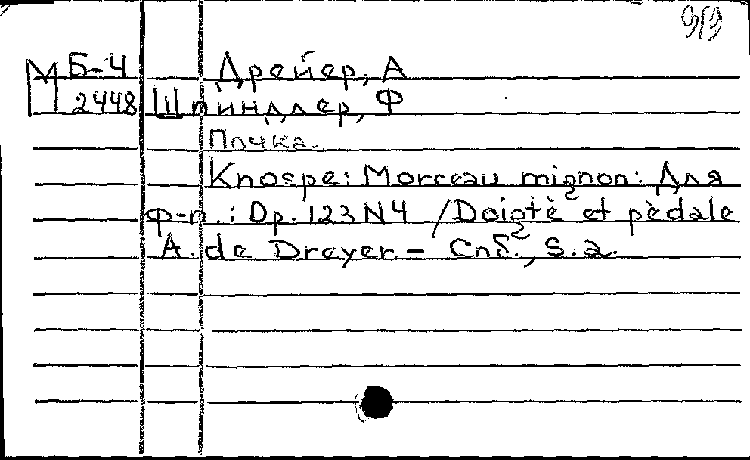 М Б-4 Дрейер, А
2448 Шпиндлер, Ф
Почка.
Knospe: Morceau mignon: Для
ф-п.: Op. 123 N4 /Doigtè et pèdale
A. de Dreyer. – Спб., s.a.